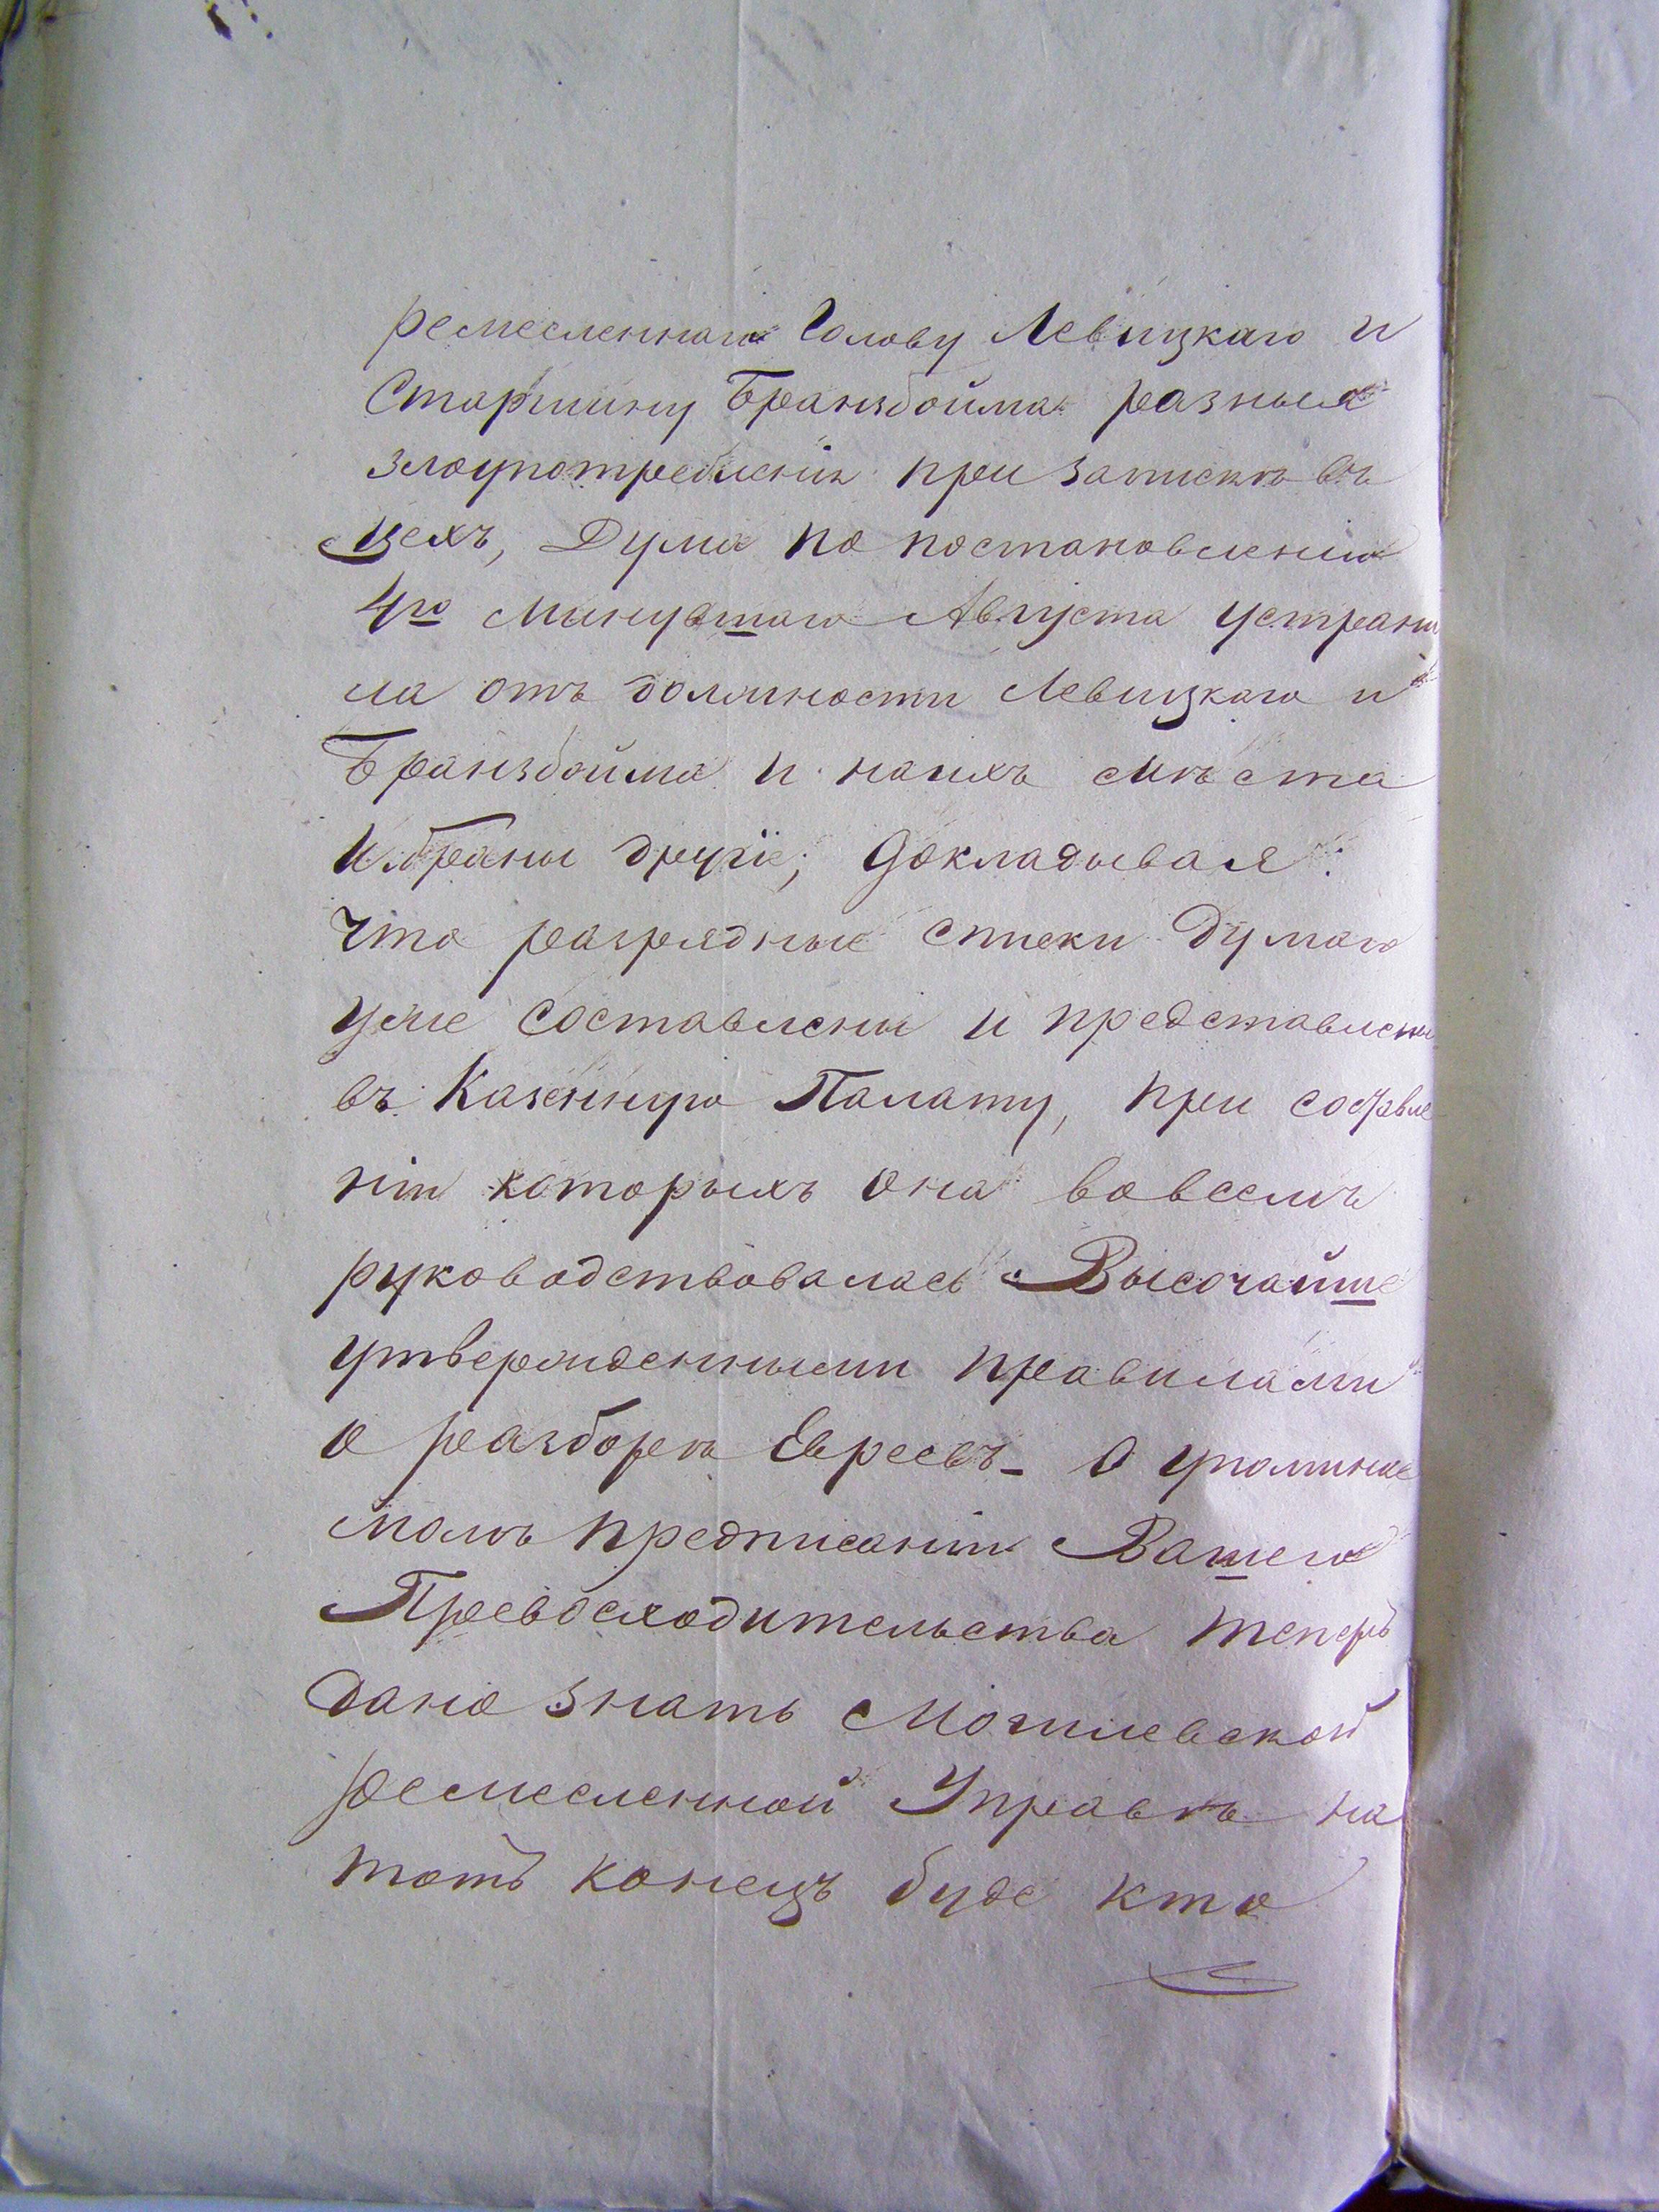 ремесленнаго Голову Левицкаго и
Старшину Бранзбойма разныя
злоупотребленія при запискѣ въ
цехъ, Дума по постановленію
4го минувшаго Августа устрани
ла отъ должности Левицкаго и
Бранзбойма и на ихъ мѣста
избраны другіе; докладывая:
что разрядные списки Думою
уже составлены и представлены
въ Казенную Палату, при составле
ніи которыхъ она вовсемъ
руководствовалась Высочайше
утвержденными правилами
о разборѣ Евреевъ. О упоминае
момъ предписаніи Вашего
Превосходительства теперь
дано знать Могилевской
ремесленной Управѣ на
тотъ конецъ буде кто